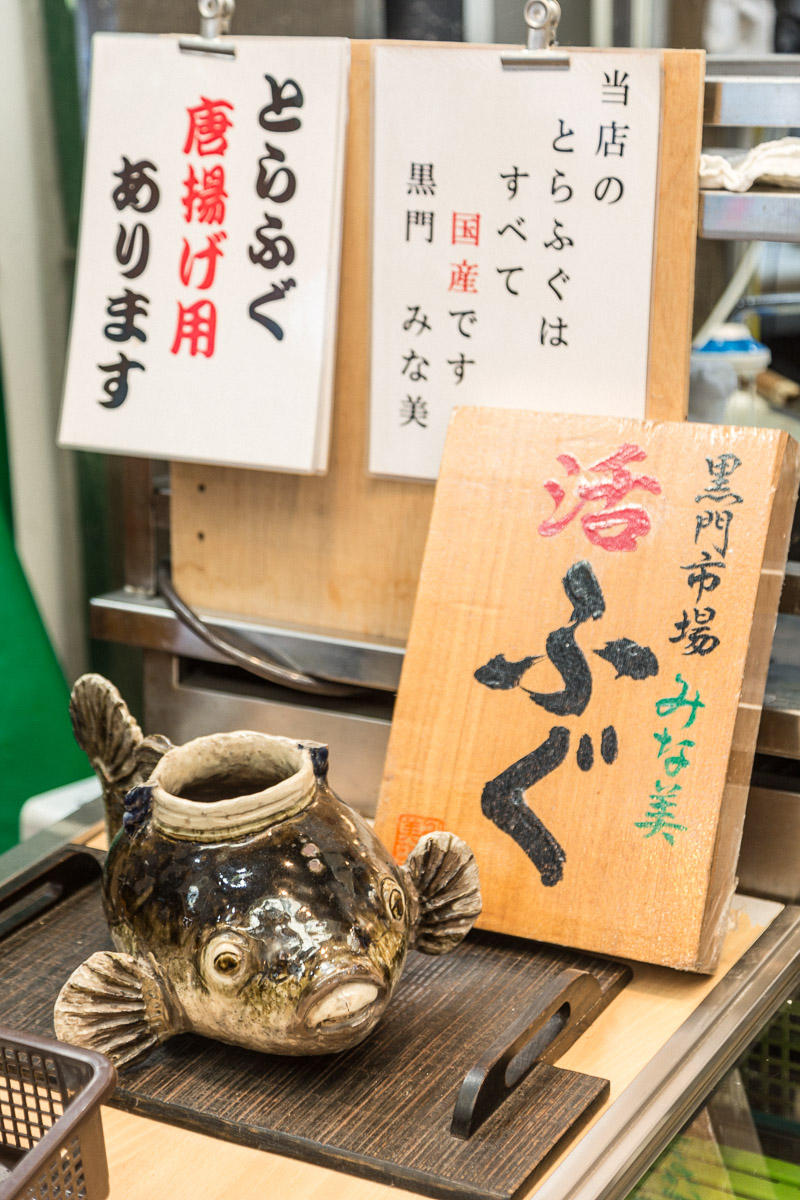 とらふぐ
唐揚げ用
あります
当店の
とらふぐは
すべて
国産です
黒門 みな美
黒門市場 みな美
活ふぐ